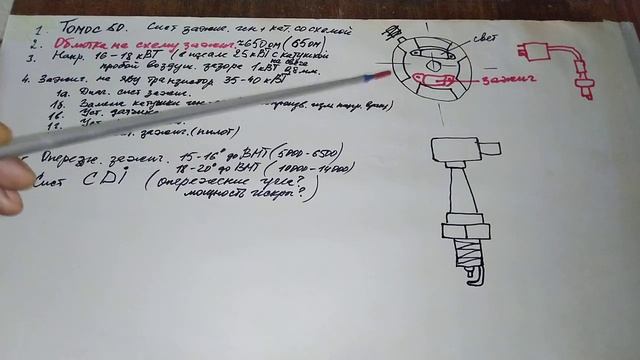 1. Томос SD. Сист зажиг. ген + кат. со схемой
2. Обмотка на схему зажиг. 650 ом (65 ом)
3. Напр. 16-18 кВт (в идеале 25 кВт) с катушкой
пробой воздуш. зазора 1 кВт на свече 0,8 мм.
4. Зажиг. на яву транзистор 35-40 кВт
1а. Диаг. сист зажиг.
1б. Замена катушки ген.
1в. Уст. датчика
1г. Уст.
зажиг. (пилот)
Опереж. зажиг. 15-16° до ВМТ (5000-6500)
18-20° до ВМТ (10000-14000)
Сист CDi (опережение угла?
мощность искры?)
свет
зажиг